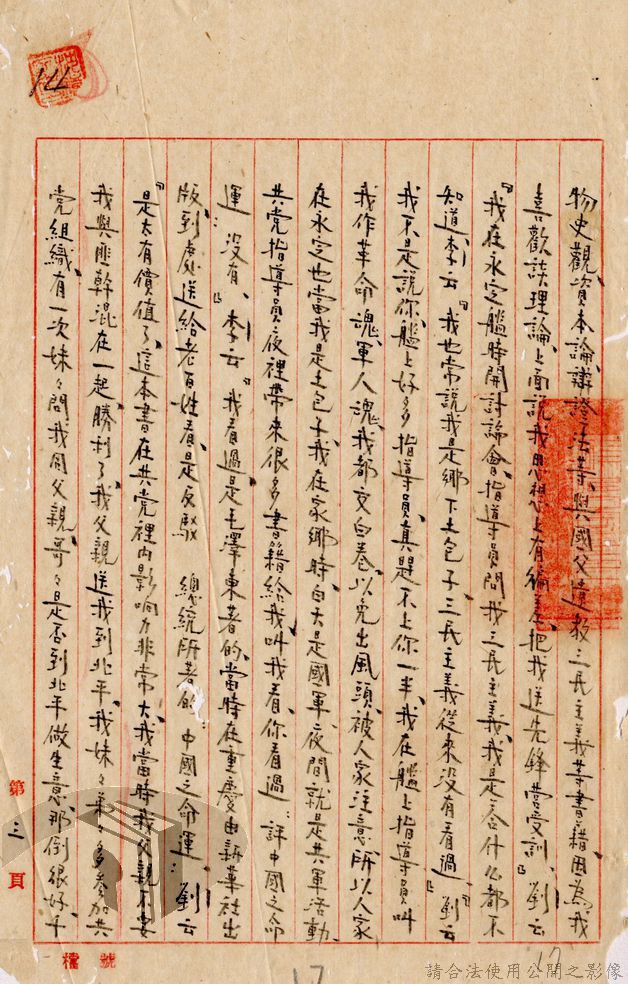 物史觀資本論辯證法等與國父遺教三民主義等書籍因為我
喜歡談理論、上面說我思想上有偏差、把我送先鋒營受訓、』劉云
『我在永定艦時開討論會、指導員問我三民主義、我是答什么都不
知道、李云『我也常說我是鄉下土包子、三民主義從來没有看過、』劉云
我不是說你、艦上好多指導員真是不上你一半、我在艦上指導員叫
我作革命魂、軍人魂、我都交白卷、以免出風頭、被人家注意所以人家
在永定也當我是土包子、我在家鄉時、白天是國軍、夜間就是共軍活動、
共党指導員夜裡帶來很多書籍給我叫我看、你看過：評中國之命
運：没有、』李云『我看過是毛澤東著的、當時在重慶由新華社出
版到處送給老百姓看是反駁 總統所著的：中國之命運：』劉云
『是太有價值了、這本書在共党裡內影响力非常大、我當時我父親不要
我與匪幹混在一起、勝利了、我父親送我到北平、我妹々弟々多參加共
党組織、有一次妹々問我同父親、哥々是否到北平做生意、那倒很好、千
第三頁
檔號
17
17
請合法使用公開之影像